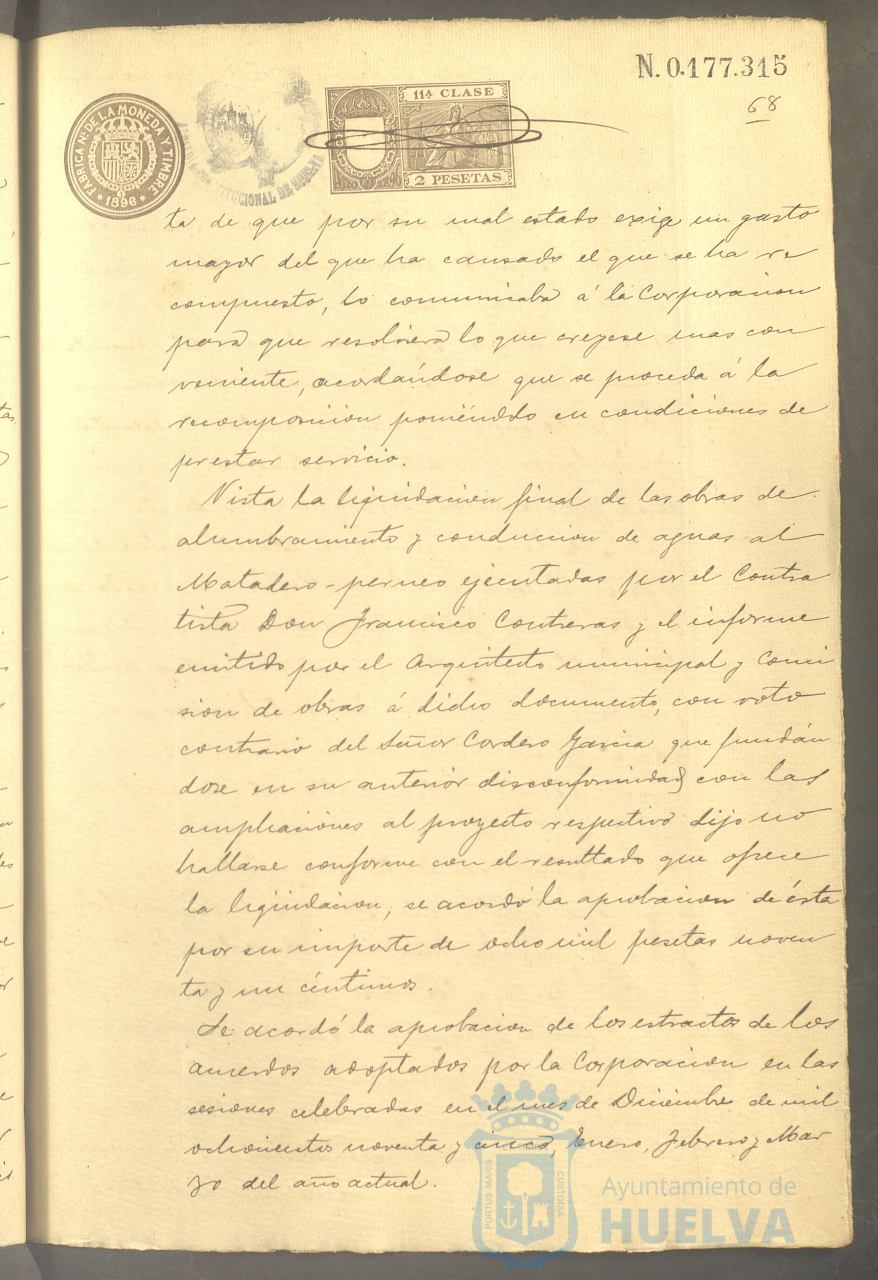 N. 0.177.315
68
FABRICA Nal. DE LA MONEDA Y TIMBRE
* 1896 *
11ª CLASE
2 PESETAS
ta de que por su mal estado exige un gasto
mayor del que ha causado el que se ha re
compuesto, lo comunicaba á la Corporacion
para que resolviera lo que creyese mas con
veniente, acordándose que se proceda á la
recomposicion poniéndolo en condiciones de
prestar servicio.
Vista la liquidacion final de las obras de
alumbramiento y conduccion de aguas al
Matadero-perneo ejecutadas por el Contra
tista Don Francisco Contreras y el informe
emitido por el Arquitecto municipal y Comi
sion de obras á dicho documento, con voto
contrario del Señor Cordero Garcia que fundán
dose en su anterior disconformidad con las
ampliaciones al proyecto respectivo dijo no
hallarse conforme con el resultado que ofrece
la liquidacion, se acordó la aprobacion de ésta
por su importe de ocho mil pesetas noven
ta y un céntimos.
Se acordó la aprobacion de los estractos de los
acuerdos adoptados por la Corporacion en las
sesiones celebradas en el mes de Diciembre de mil
ochocientos noventa y cinco, Enero, Febrero y Mar
zo del año actual.
PORTUS MARIS
CUSTODIA
Ayuntamiento de
HUELVA